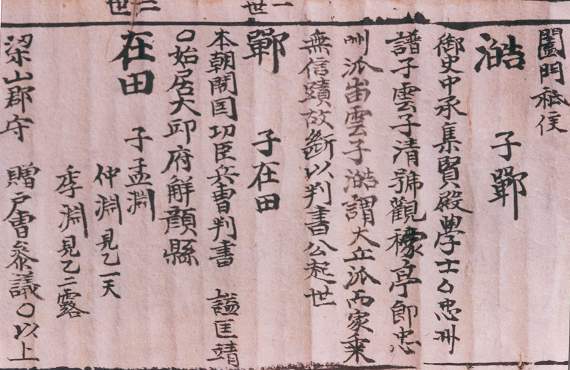 一世
二世
閤門祗候
澔 子鄲
御史中承集賢殿學士○忠州
譜子雲子清號觀稼亭即忠
州派 雲子澔謂大丘派而家乗
無信蹟故斷以判書公起世
鄲 子在田
本朝開国功臣兵曹判書 謚匡靖
○始居大邱府解顔縣
在田 子孟淵
仲淵見乙一天
季淵見乙二露
梁山郡守 贈戶曹參議○以上